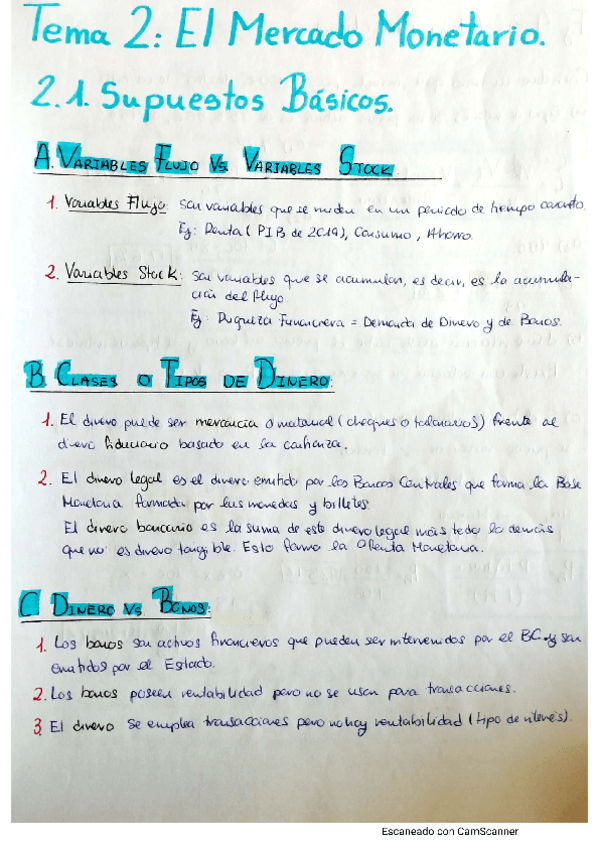 Tema 2: El Mercado Monetario.
2.1. Supuestos Básicos.
A. VARIABLES FLUJO VS VARIABLES STOCK
1. Variables Flujo: Son variables que se miden en un periodo de tiempo concreto.
Ej: Renta (PIB de 2019), Consumo, Ahorro.
2. Variables Stock: Son variables que se acumulan, es decir, es la acumula-
ción del flujo.
Ej: Riqueza Financiera = Demanda de Dinero y de Bonos.
B. CLASES O TIPOS DE DINERO:
1. El dinero puede ser mercancía o material (cheques o talonarios) frente al
dinero fiduciario basado en la confianza.
2. El dinero legal es el dinero emitido por los Bancos Centrales que forma la Base
Monetaria formada por las monedas y billetes.
El dinero bancario es la suma de este dinero legal más todo lo demás
que no es dinero tangible. Esto forma la Oferta Monetaria.
C DINERO VS BONOS:
1. Los bonos son activos financieros que pueden ser intervenidos por el BC y son
emitidos por el Estado.
2. Los bonos poseen rentabilidad pero no se usan para transacciones.
3. El dinero se emplea transacciones pero no hay rentabilidad (tipo de interés).
Escaneado con CamScanner